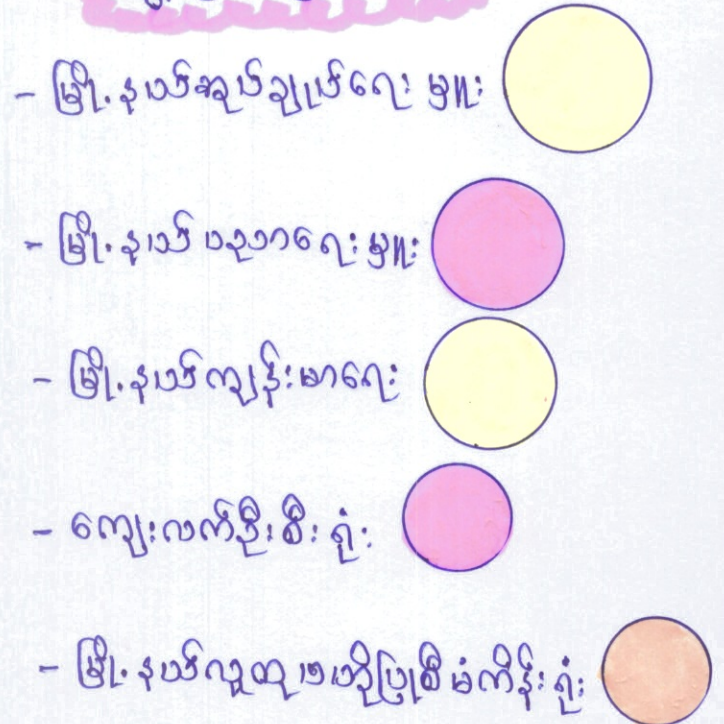 - မြို့နယ်အုပ်ချုပ်ရေး မှူး
- မြို့နယ် ပညာရေးမှူး
- မြို့နယ်ကျန်းမာရေး
- ကျေးလက်ဦးစီး ရုံး
- မြို့နယ်လူထု ဗဟိုပြုစီမံကိန်း ရုံး